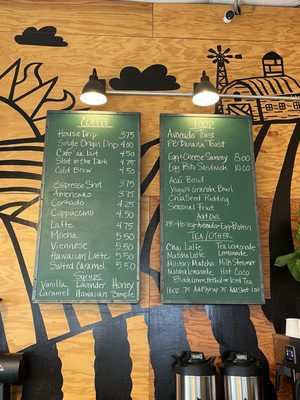 COFFEE
House Drip 3.75
Single Origin Drip 4.00
Cafe au lait 4.50
Shot in the Dark 4.75
Cold Brew 4.50
Espresso Shot 3.75
Americano 3.75
Cortado 4.25
Cappuccino 4.50
Latte 4.75
Mocha 5.50
Viennese 5.50
Hawaiian Latte 5.50
Salted Caramel 5.50
Syrups
Vanilla Lavender Honey
Caramel Hawaiian Simple
FOOD
Avocado Toast
PB-Banana Toast
Egg & Cheese Sammy 8.00
Egg Pesto Sandwich 10.00
Acai Bowl
Yogurt Granola Bowl
Chia Seed Pudding
Seasonal Fruit
Add Ons
PB-Honey-Avocado-Egg-Protein
TEA/OTHER
Chai Latte
Matcha Latte
Matcha Lemonade
Tea Lemonade
Lemonade
Hot Coco
Military Matcha
Milk Steamer
Iced Tea